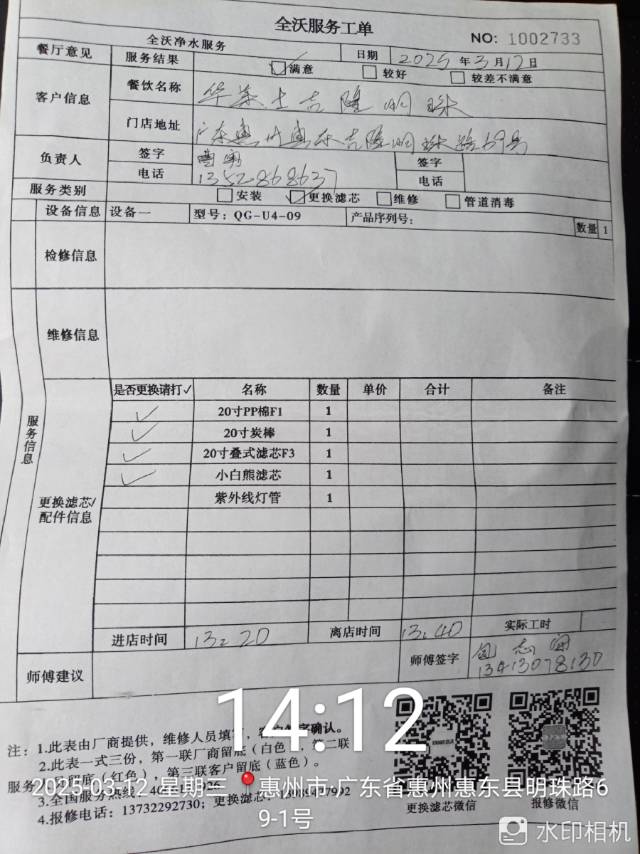 全沃服务工单
全沃净水服务
NO: 1002733
餐厅意见 服务结果 日期 2025年3月12日
满意 较好 较差不满意
客户信息 餐饮名称 华莱士吉隆明珠
门店地址 广东惠州惠东吉隆明珠路69号
负责人 签字 签字
电话 1352868637 电话
服务类别 安装 更换滤芯 维修 管道消毒
设备信息 设备一 型号: QG-U4-09 产品序列号: 数量 1
检修信息
维修信息
服务信息
更换滤芯/配件信息
是否更换请打✓ 名称 数量 单价 合计 备注
✓ 20寸PP棉F1 1
✓ 20寸炭棒 1
✓ 20寸叠式滤芯F3 1
✓ 小白熊滤芯 1
紫外线灯管 1
进店时间 13:20 离店时间 13:40 实际工时
师傅建议 师傅签字 13413078130
14:12
注: 1.此表由厂商提供, 维修人员填写, 签字确认。
2.此表一式三份, 第一联厂商留底(白色), 第二联
服务 留底(红色), 第三联客户留底(蓝色)。
2025-03-12 星期三 惠州市·广东省惠州惠东县明珠路6
9-1号
3.全国服务热线:
4.报修电话: 13732292730; 更换滤芯:
更换滤芯微信 报修微信
水印相机